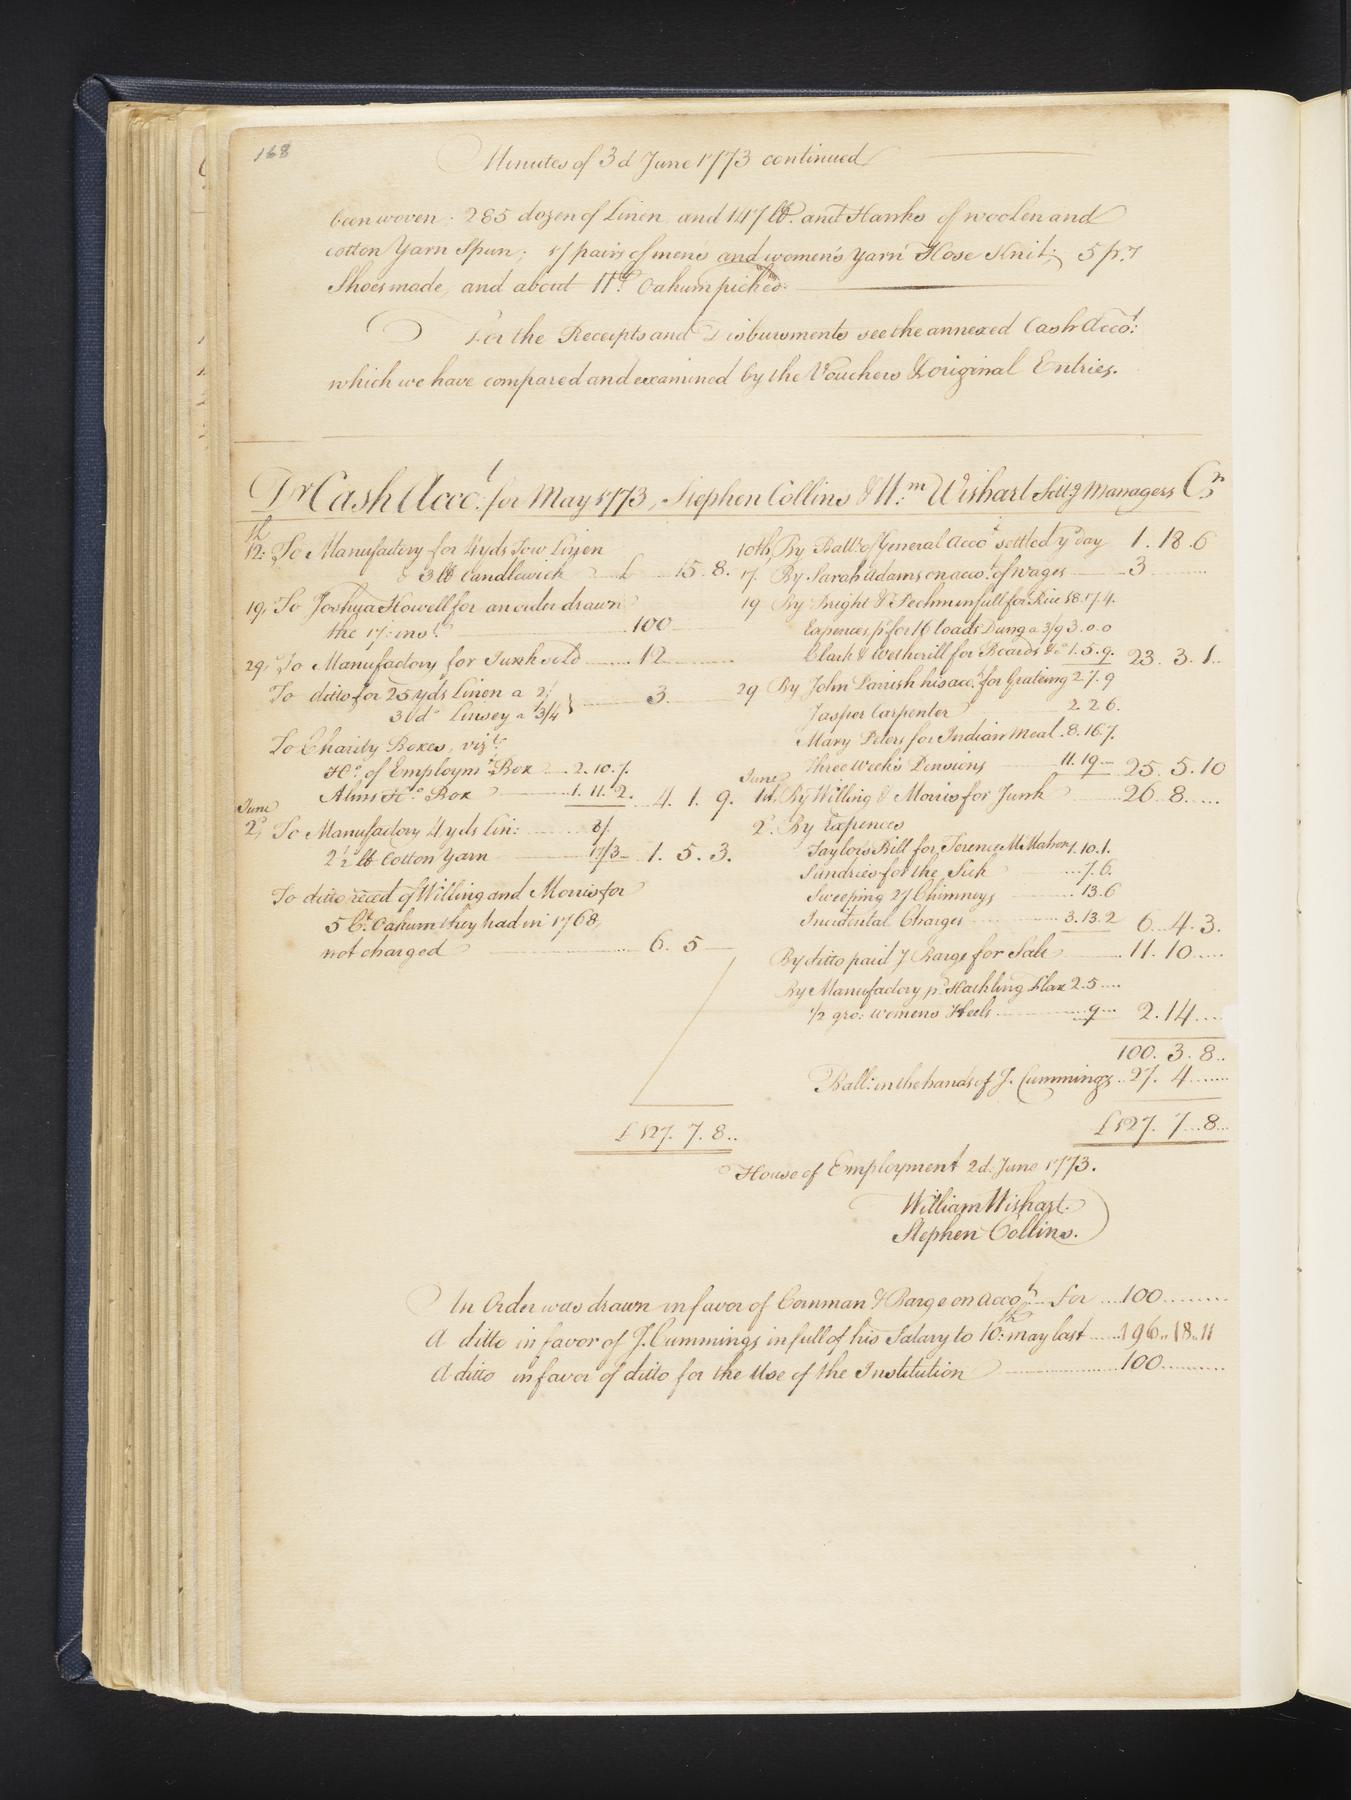 168
Minutes of 3d June 1773 continued
been woven. 285 dozen of Linen and 147 lb. and Hanks of woolen and
cotton Yarn Spun; 17 pairs of men's and women's Yarn Hose Knit; 5 pr.
Shoes made, and about 11 Ct. Oakum pick'd.
For the Receipts and Disbursments see the annexed Cash Accot:
which we have compared and examined by the Vouchers & original Entries.
Dr Cash Acct. for May 1773, Stephen Collins & Wm. Wishart Sittg Managers Cr
12th: To Manufactory for 4 yds Tow Linen
& 3 lb Candlewick £ 15.8.
19, To Joshua Howell for an order drawn
the 17: inst. 100
29, To Manufactory for Junk sold 12
To ditto for 25 yds Linen a 2/
3 do. Linsey a 3/4 3
To Charity Boxes, vizt.
Ho. of Employmt. Box 2.10.7.
Alms Ho. Box 1.11.2. 4.1.9.
June
2d, To Manufactory 4 yds Lin: 8/.
2 1/2 lb Cotton Yarn 17/3 1.5.3.
To ditto reced of Willing and Morris for
5 Ct. Oakum they had in 1768,
not charged 6.5
£127.7.8..
10th, By Ball: of General Acco't settled ye day 1.18.6
17. By Sarah Adams on acco. of wages 3
19 By Bright & Pechin in full for Rice 18.17.4.
Expences pd. for 16 loads Dung a 3/9 3.0.0
Clark & Wetherill for Boards &c 1.5.9. 23.3.1..
29 By John Parrish his acct. for Grateing 2.7.9
Jasper Carpenter 2.2.6.
Mary Peters for Indian Meal 8.16.7.
Three week's Pensions 11.19 25.5.10
June
1st, By Willing & Morris for Junk 26.8
2d. By Expences
Taylors Bill for Terence McMahon 1.10.1.
Sundries for the Sick 7.6.
Sweeping 27 Chimneys 13.6
Incidental Charges 3.13.2 6.4.3.
By ditto paid J Barge for Salt 11.10
By Manufactory pd. Hachling Flax 2.5
1/2 gro: womens Heels 9 2.14
100.3.8..
Ball: in the hands of J. Cummings 27.4
£127.7.8
House of Employment 2d. June 1773.
William Wishart.
Stephen Collins.
An Order was drawn in favor of Cornman & Barge on accot. for 100
A ditto in favor of J. Cummings in full of his Salary to 10th: may last 196..18..11
A ditto in favor of ditto for the Use of the Institution 100